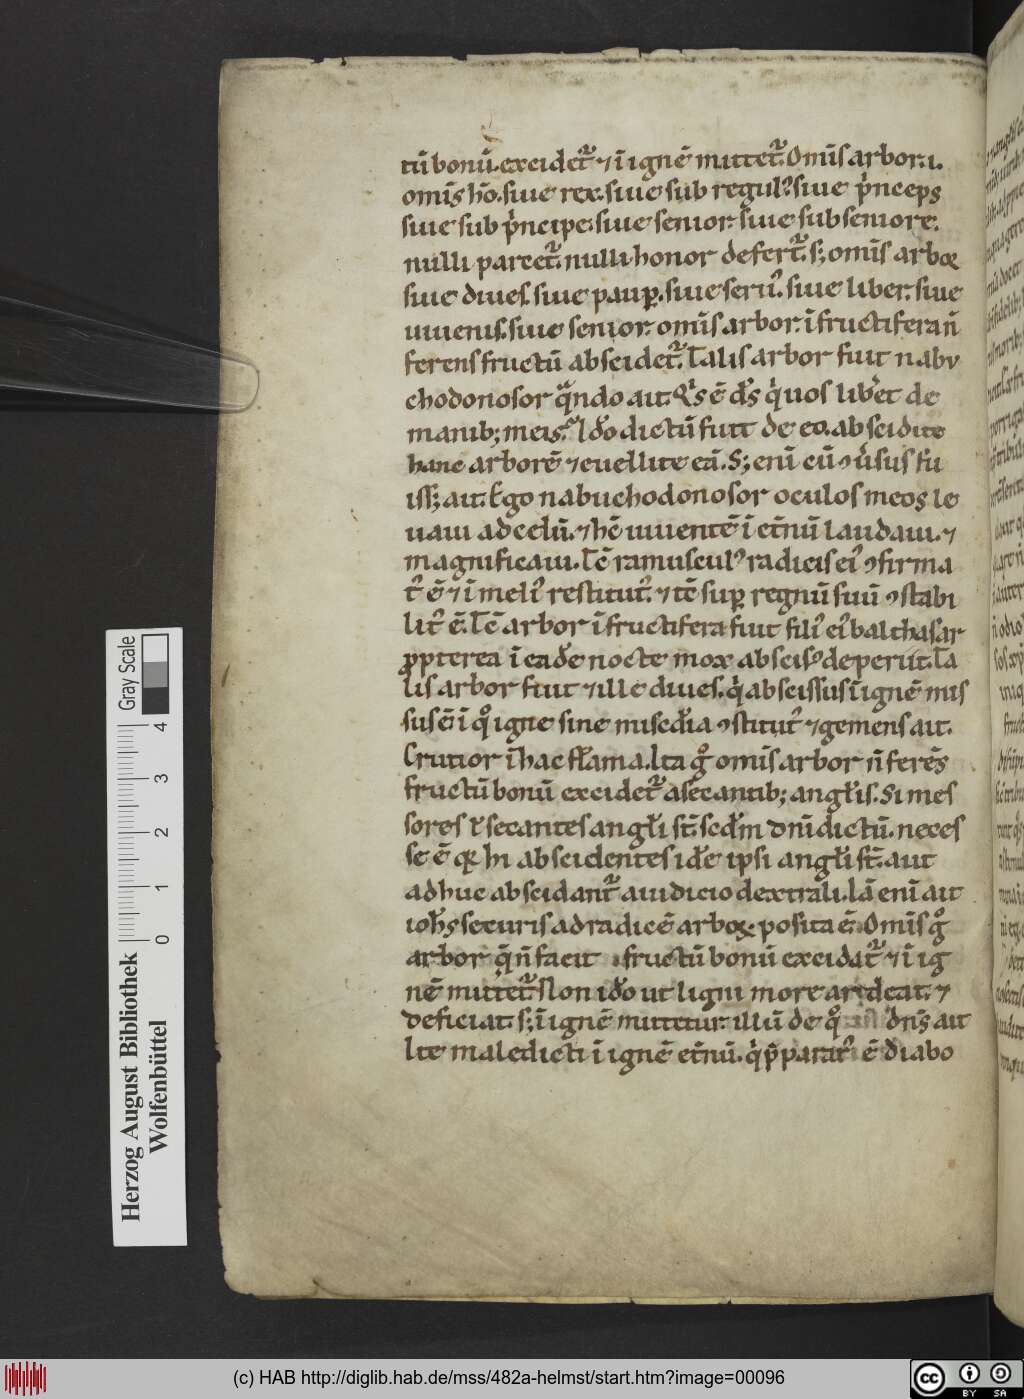 tū bonū. excidet᷑ ⁊ ī ignē mittet᷑. Omīs arbor. i.
omīs hō. siue rex. siue sub regul᷒. siue p̍nceps
siue sub p̍ncipe. siue senior. siue sub seniore.
nulli parcet᷑. nulli honor defert᷑. s; omīs arbor
siue diues. siue paup̱. siue seru᷒. siue liber. siue
iuuenis. siue senior. omīs arbor. īfructifera n̄
ferens fructū abscidet᷑. Talis arbor fuit nabu
chodonosor qᵃndo ait. Qⁱs ē d̄s qⁱ uos libet de
manib; meis. Id̄o dictū fuit de eo. abscidite
hanc arborē ⁊ euellite eā. S; eni eū ꝯuˢsus fu
iss; ait. Ego nabuchodonosor oculos meos le
uaui ad celū. ⁊ hē uiuentē ī et̄nū laudaui. ⁊
magnificaui. Tē ramuscul᷒ radicis ei᷒ ꝯfirma
t᷒ ē ⁊ ī meli᷒ restitut᷒. ⁊ tē sup̱ regnū suū ꝯstabi
lit᷒ ē. Tē arbor īfructifera fuit fili᷒ ei᷒ balthasar
ꝓpterea ī eadē nocte mox abscis᷒ deperiit. Ta
lis arbor fuit ⁊ ille diues. qⁱ abscissus ī ignē mis
sus ē ī qᵒ igne sine misc̄dia ꝯstitut᷒ ⁊ gemens ait.
Crutior ī hac flāma. Ita gᵒ omīs arbor n̄ ferēs
fructū bonū excidet᷑ a secantib; angl̄is. Si mes
sores ł secantes angl̄i st̄. scd̄m dnī dictū. neces
se ē qꝛ hi abscidentes idē ipsi angl̄i st̄. aut
adhuc abscidant᷑ a iudicio dextrali. Iā eni ait
ioh̄s securis ad radicē arboꝝ posita ē. Omīs gᵒ
arbor q̄ n̄ facit fructū bonū excidat᷑ ⁊ ī ig
nē mittet᷑. Non id̄o ut ligni more ardeat. ⁊
deficiat. s; ī ignē mittetur. illū de qᵒ dn̄s ait
Ite maledicti ī ignē et̄nū. qⁱ p̄parat᷒ ē diabo
Gray Scale
0 1 2 3 4
Herzog August Bibliothek
Wolfenbüttel
(c) HAB http://diglib.hab.de/mss/482a-helmst/start.htm?image=00096
cc BY SA